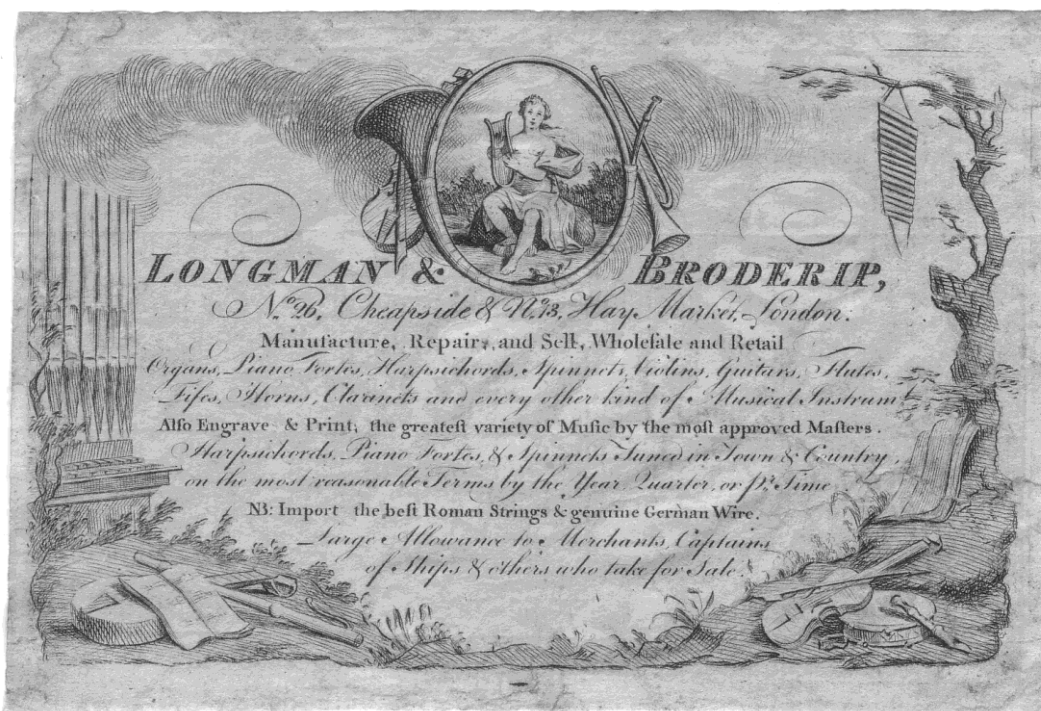 LONGMAN & BRODERIP,
No. 26, Cheapside & No. 13, Hay Market, London.
Manufacture, Repair, and Sell, Wholeſale and Retail
Organs, Piano Fortes, Harpsichords, Spinnets, Violins, Guitars, Flutes,
Fifes, Horns, Clarinets and every other kind of Musical Instrumt.
Alſo Engrave & Print, the greateſt variety of Muſic by the moſt approved Maſters.
Harpsichords, Piano Fortes, & Spinnets Tuned in Town & Country,
on the most reasonable Terms by the Year, Quarter, or pr. Time
NB: Import the beſt Roman Strings & genuine German Wire.
Large Allowance to Merchants, Captains
of Ships & others who take for Sale.